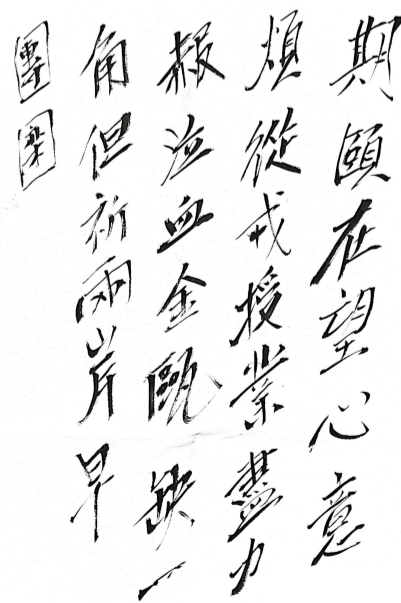 期頤在望心意
煩從戎授業盡力
報泣血金甌缺一
角但祈兩岸早
團圞